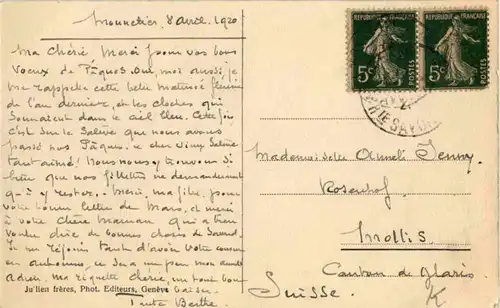 Monnetier 8 avril 1920
Ma chérie Merci pour vos bons
voeux de Pâques. Oui, moi aussi, je
me rappelle cette belle matinée fleurie
de l'an dernier, et les cloches qui
sonnaient dans le ciel bleu. Cette fois
c'est sur le Salève que nous avons
passé nos Pâques, ce cher vieux Salève
tant aimé! Nous nous y trouvons si
bien que nos fillettes ne demanderaient
qu'à y rester. Merci, ma fille, pour
votre bonne lettre de Mars, et merci
à votre chère Maman qui a bien
voulu dire de bonnes choses de
Je me réjouis tant d'avoir votre
en automne, ce sera un peu moi aussi
Adieu, ma chérie, un tout bon
baiser.
Tante Berthe
Jullien frères, Phot. Editeurs, Genève
REPUBLIQUE FRANÇAISE
5c POSTES
REPUBLIQUE FRANÇAISE
5c POSTES
HTE SAVOIE
Mademoiselle Anneli Jenny
Rosenhof
Mollis
Canton de Glaris
Suisse.